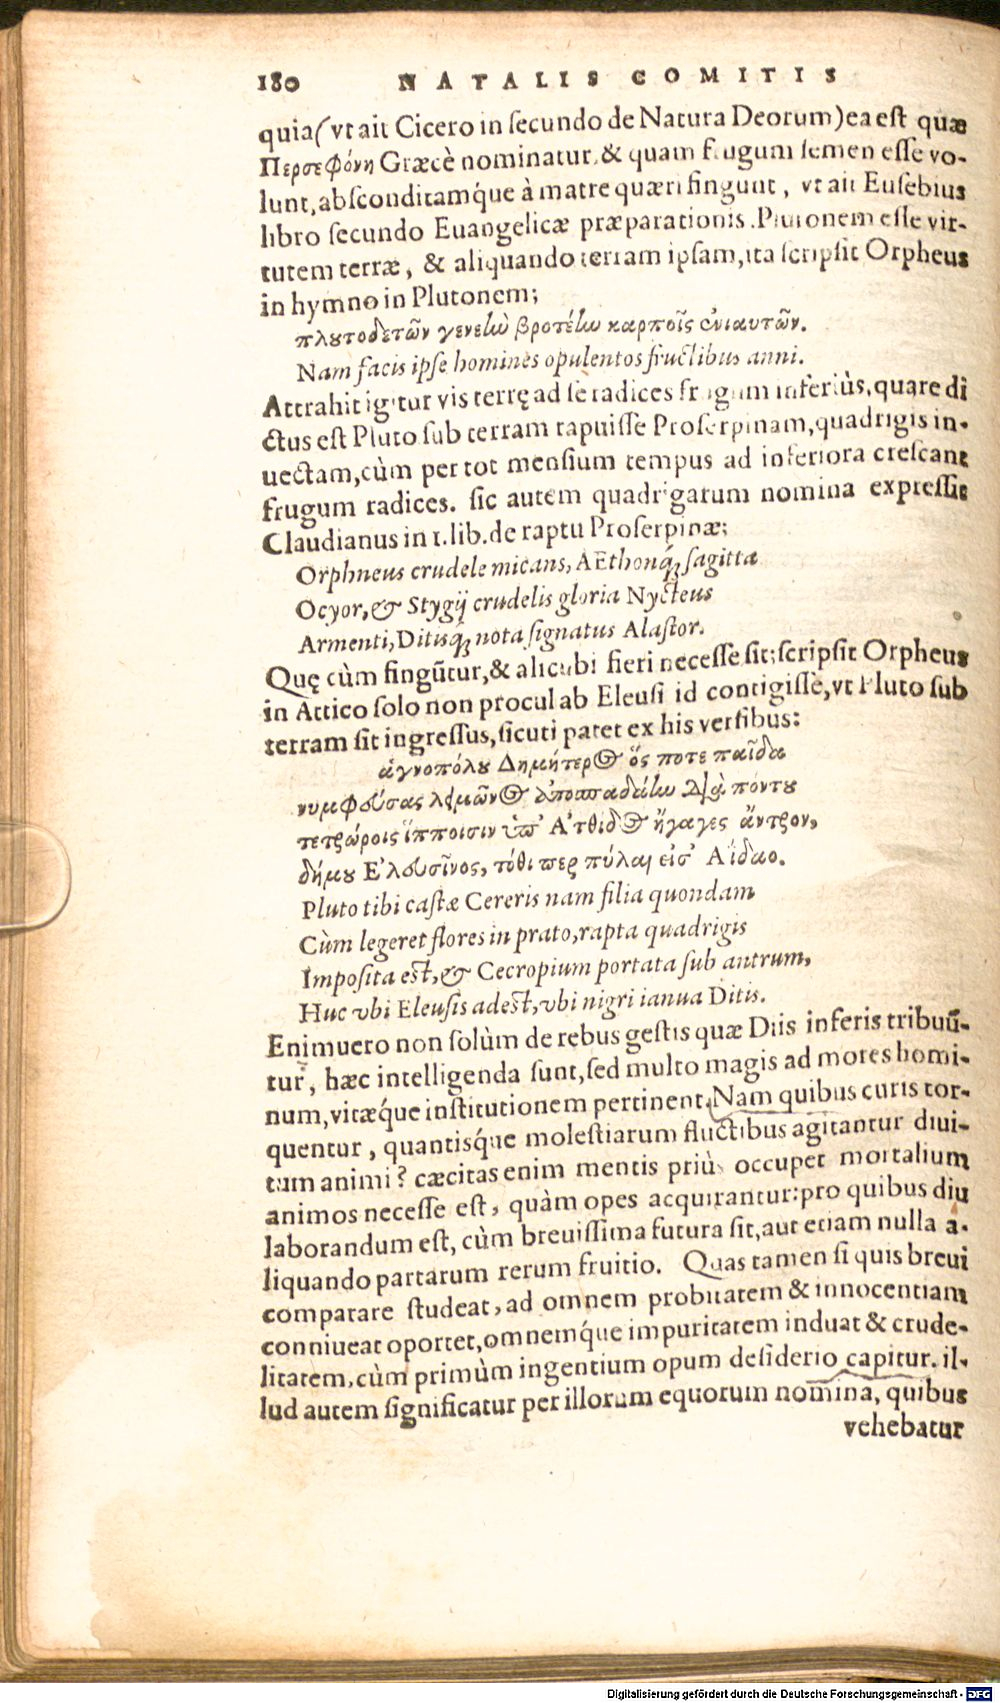 180 NATALIS COMITIS
quia (vt ait Cicero in secundo de Natura Deorum) ea est quæ
Περσεφόνη Græcè nominatur, & quam frugum semen esse vo-
lunt, absconditamq́ue à matre quæri fingunt, vt ait Eusebius
libro secundo Euangelicæ præparationis. Plutonem esse vir-
tutem terræ, & aliquando terram ipsam, ita scripsit Orpheus
in hymno in Plutonem;
πλουτοδετῶν γενεὴν βροτέην καρποῖς ἐνιαυτῶν.
Nam facis ipse homines opulentos fructibus anni.
Attrahit igitur vis terrę ad se radices frugum inferiùs, quare di
ctus est Pluto sub terram rapuisse Proserpinam, quadrigis in-
uectam, cùm per tot mensium tempus ad inferiora crescant
frugum radices. sic autem quadrigarum nomina expressit
Claudianus in 1. lib. de raptu Proserpinæ;
Orphneus crudele micans, AEthonq́; sagitta
Ocyor, & Stygij crudelis gloria Nycteus
Armenti, Ditisq́; nota signatus Alastor.
Quę cùm fingũtur, & alicubi fieri necesse sit; scripsit Orpheus
in Attico solo non procul ab Eleusi id contigisse, vt Pluto sub
terram sit ingressus, sicuti patet ex his versibus:
ἁγνοπόλου Δημήτερος ὅς ποτε παῖδα
νυμφεύσας λειμῶνος ἀποσπαδίην διὰ πόντου
τετρώροις ἵπποισιν ὑπ' Ἀτθίδος ἤγαγες ἄντρον,
δήμου Ἐλευσῖνος, τόθι περ πύλαι εἰσ' Ἀίδαο.
Pluto tibi castæ Cereris nam filia quondam
Cùm legeret flores in prato, rapta quadrigis
Imposita est, & Cecropium portata sub antrum,
Huc vbi Eleusis adest, vbi nigri ianua Ditis.
Enimuero non solùm de rebus gestis quæ Diis inferis tribuũ-
tur, hæc intelligenda sunt, sed multo magis ad mores homi-
num, vitæq́ue institutionem pertinent. Nam quibus curis tor-
quentur, quantisq́ue molestiarum fluctibus agitantur diui-
tum animi? cæcitas enim mentis priùs occupet mortalium
animos necesse est, quàm opes acquirantur: pro quibus diu
laborandum est, cùm breuissima futura sit, aut etiam nulla a-
liquando partarum rerum fruitio. Quas tamen si quis breui
comparare studeat, ad omnem probitatem & innocentiam
conniueat oportet, omnemq́ue impuritatem induat & crude-
litatem, cùm primùm ingentium opum desiderio capitur. il-
lud autem significatur per illorum equorum nomina, quibus
vehebatur
Digitalisierung gefördert durch die Deutsche Forschungsgemeinschaft - DFG